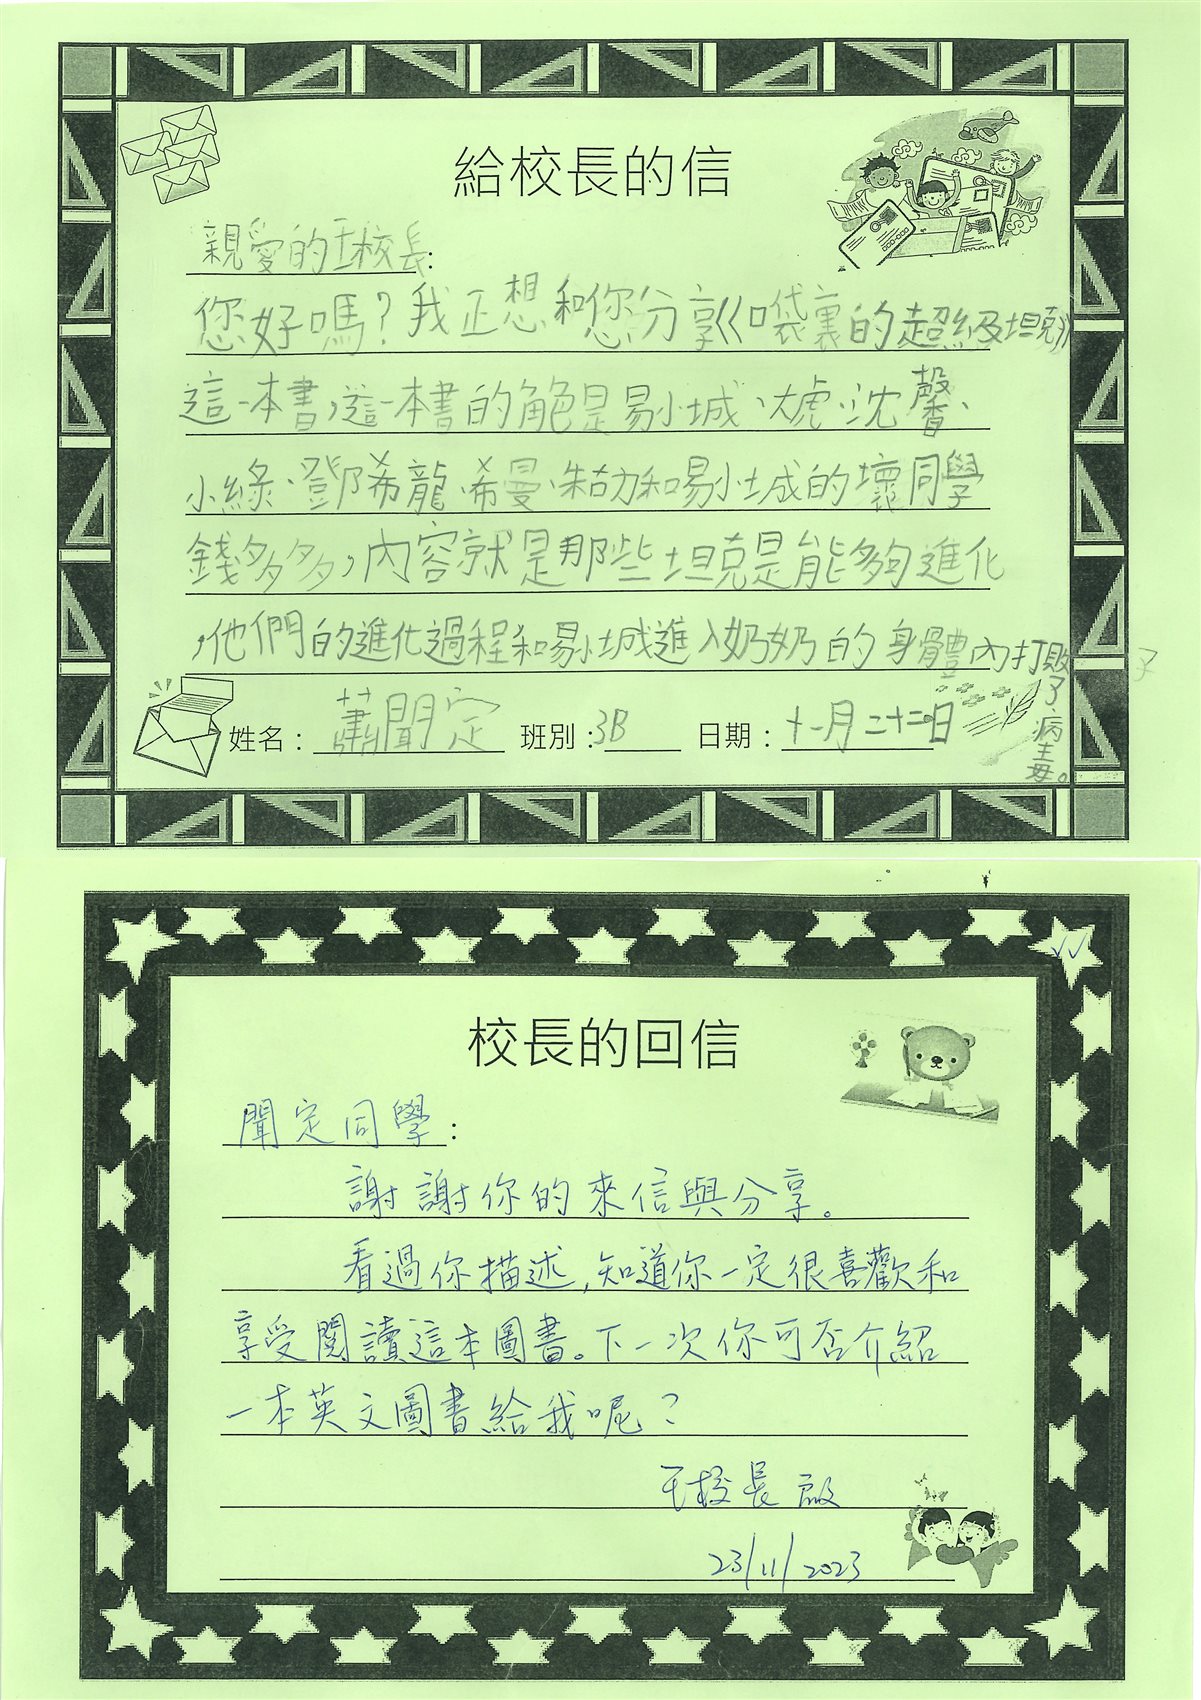 給校長的信
親愛的王校長:
您好嗎?我正想和您分享《口袋裏的超級坦克》
這一本書,這一本書的角色是易小城、大虎、沈馨、
小綠、鄧希龍、希曼、朱古力和易小城的壞同學
錢多多,內容就是那些坦克是能夠進化
,他們的進化過程和易小城進入奶奶的身體內打敗
了病毒。
姓名:蕭聞定 班別:3B 日期:十一月二十二日
校長的回信
聞定同學:
謝謝你的來信與分享。
看過你描述,知道你一定很喜歡和
享受閱讀這本圖書。下一次你可否介紹
一本英文圖書給我呢?
王校長啟
23/11/2023